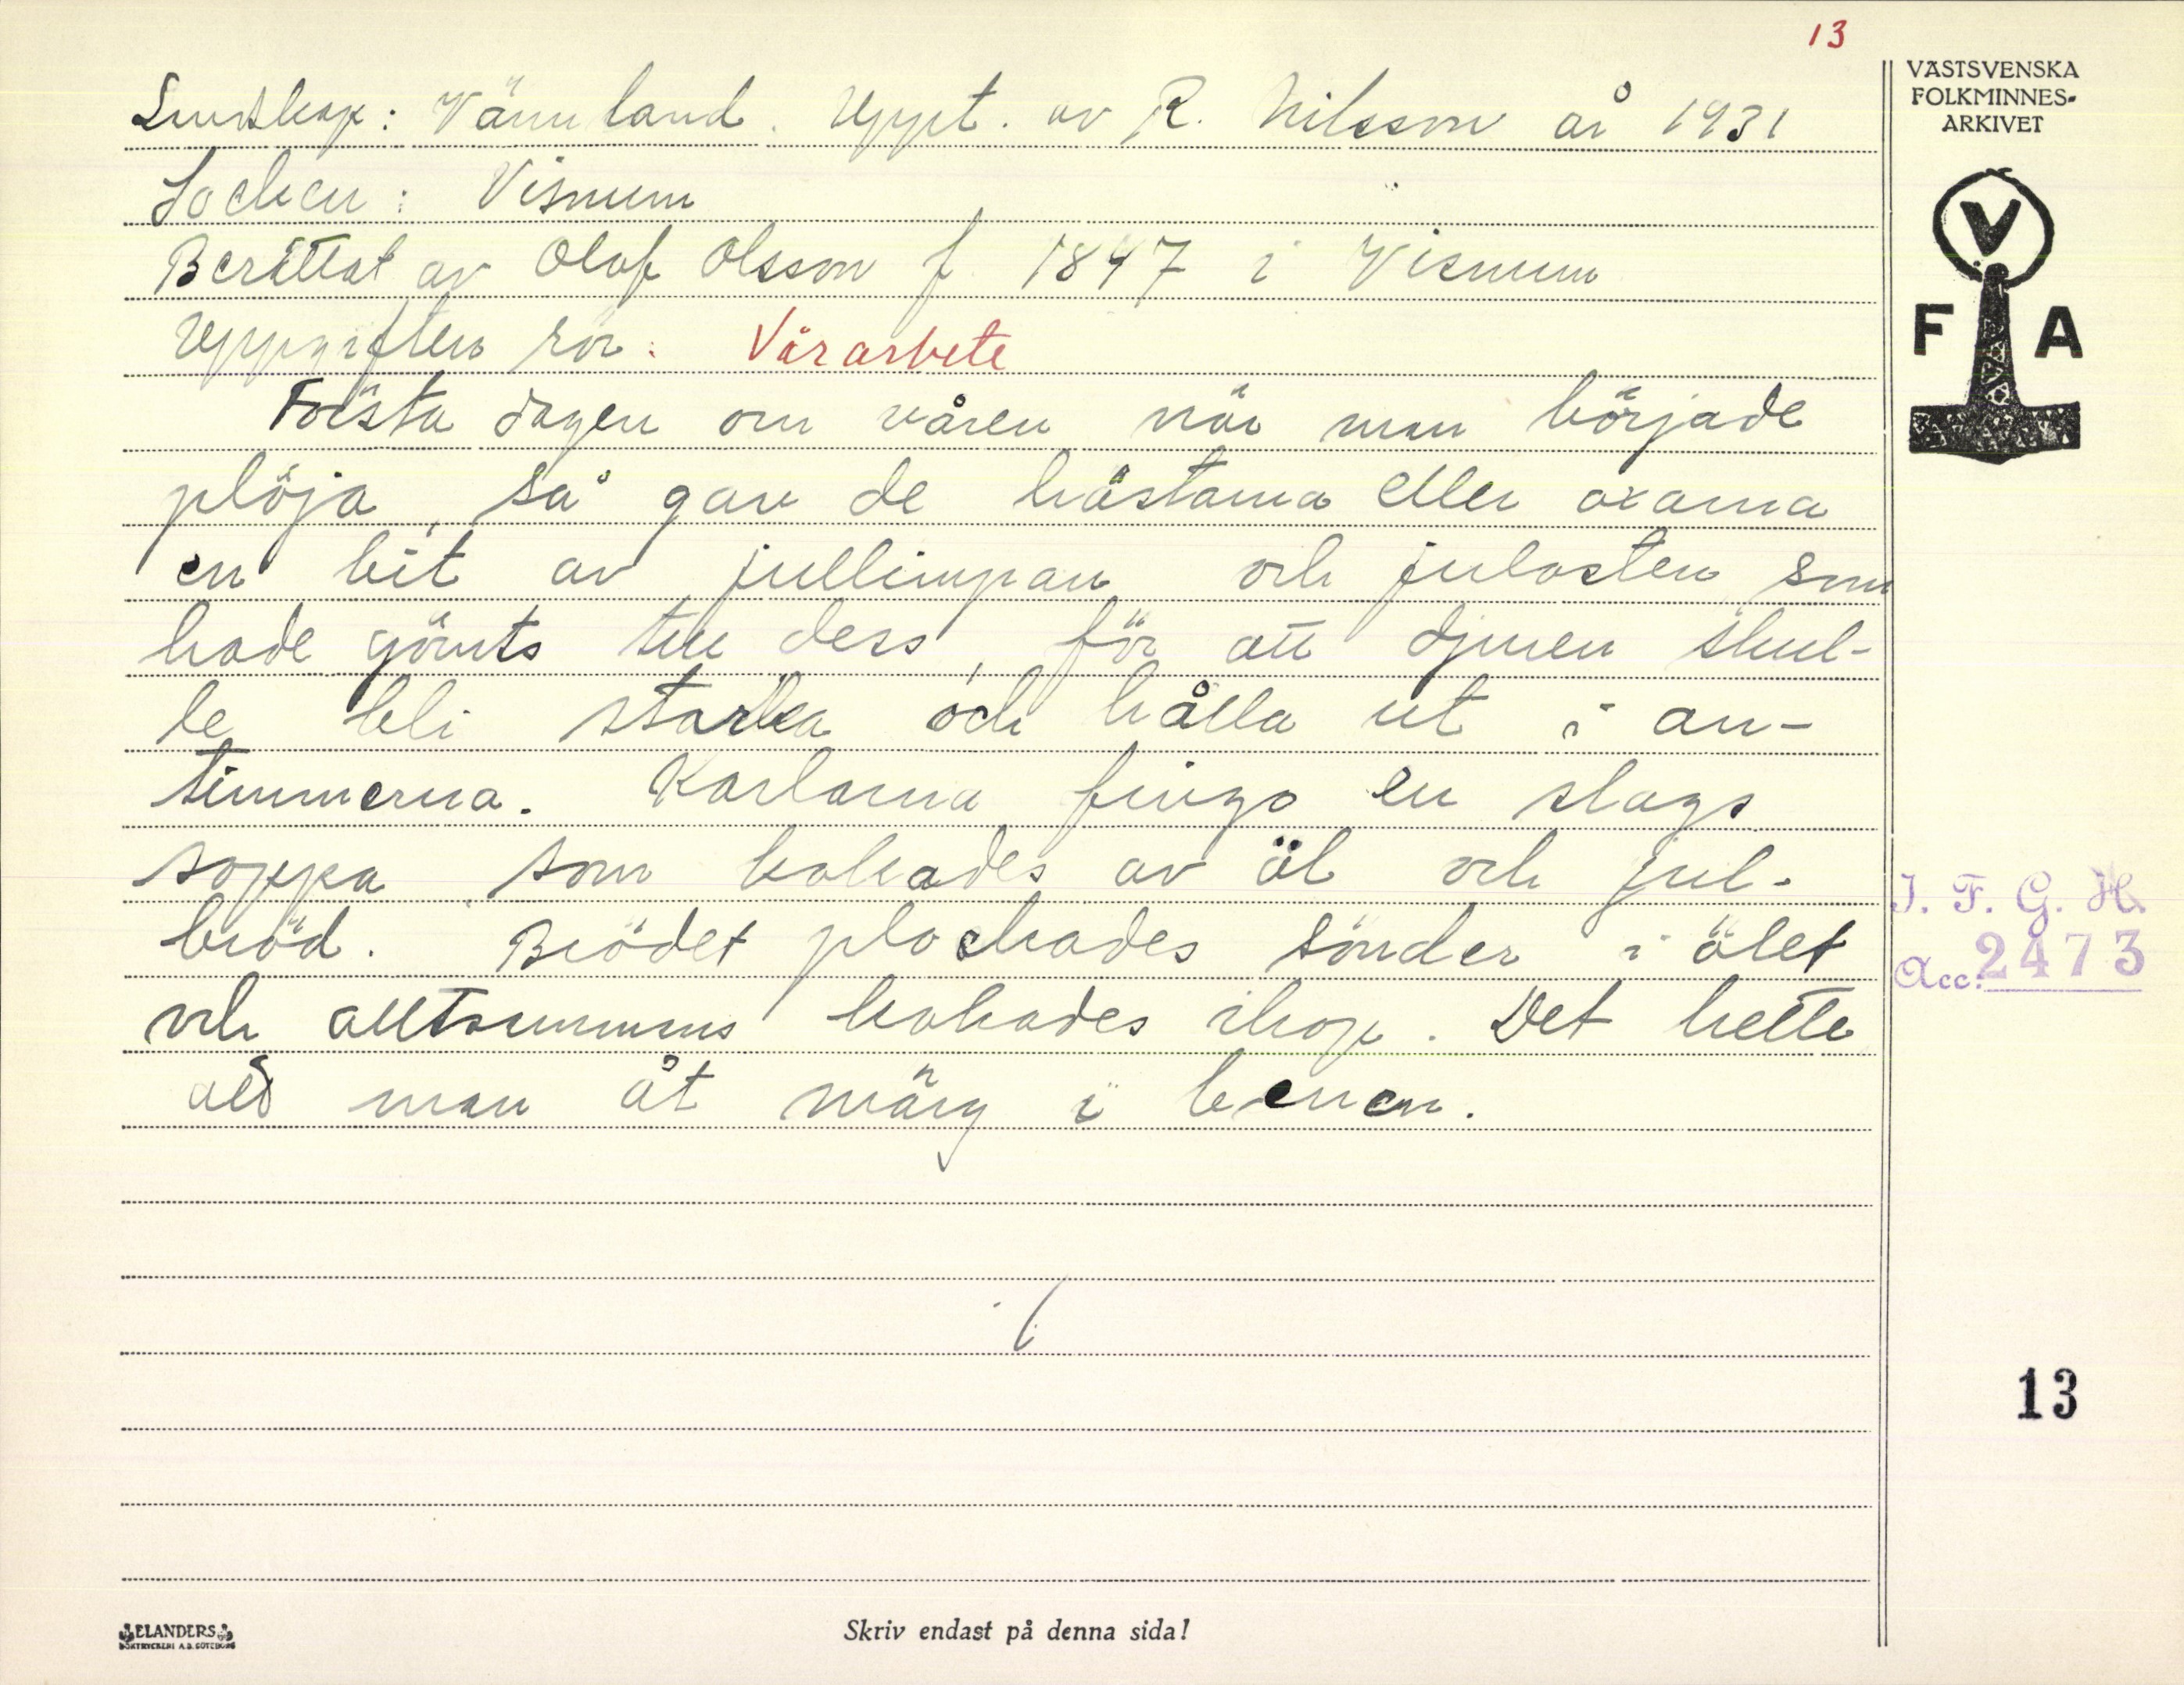 13
Landskap: Värmland. Uppt. av R. Nilsson år 1931
Socken: Visnum
Berättat av Olof Olsson f. 1847 i Visnum
Uppgiften rör: Vårarbete
Första dagen om våren när man började
plöja, så gav de hästarna eller oxarna
en bit av jullimpan och julosten, som
hade gömts till dess, för att djuren skul-
le bli starka och hålla ut i an-
timmerna. Karlarna fingo en slags
soppa, som kokades av öl och jul-
bröd. Brödet plockades sönder i ölet
och alltsammans kokades ihop. Det hette
att man åt märg i benen.
VÄSTSVENSKA
FOLKMINNES-
ARKIVET
V
F A
I. F. G. H.
Acc. 2473
13
ELANDERS
BOKTRYCKERI A.B. GÖTEBORG
Skriv endast på denna sida!